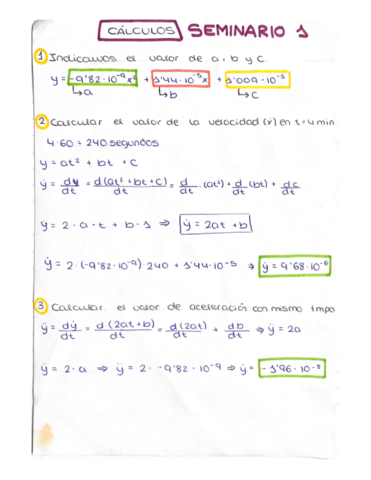 CÁLCULOS SEMINARIO 1
1 Indicamos el valor de a, b y c.
y = -9'82·10⁻⁹x² + 1'44·10⁻⁵x + 1'009·10⁻⁵
↳a ↳b ↳c
2 Calcular el valor de la velocidad (ẏ) en t=4min
4·60 = 240 segundos
y = at² + bt + c
ẏ = dy/dt = d(at²+bt+c)/dt = d/dt · (at²) + d/dt (bt) + dc/dt
ẏ = 2·a·t + b·1 ⇒ ẏ = 2at + b
ẏ = 2·(-9'82·10⁻⁹)·240 + 1'44·10⁻⁵ ⇒ ẏ = 9'68·10⁻⁶
3 Calcular el valor de aceleración con mismo tmpo
ÿ = dẏ/dt = d(2at+b)/dt = d(2at)/dt + db/dt ⇒ ÿ = 2a
ÿ = 2·a ⇒ ÿ = 2· -9'82·10⁻⁹ ⇒ ÿ = -1'96·10⁻⁸